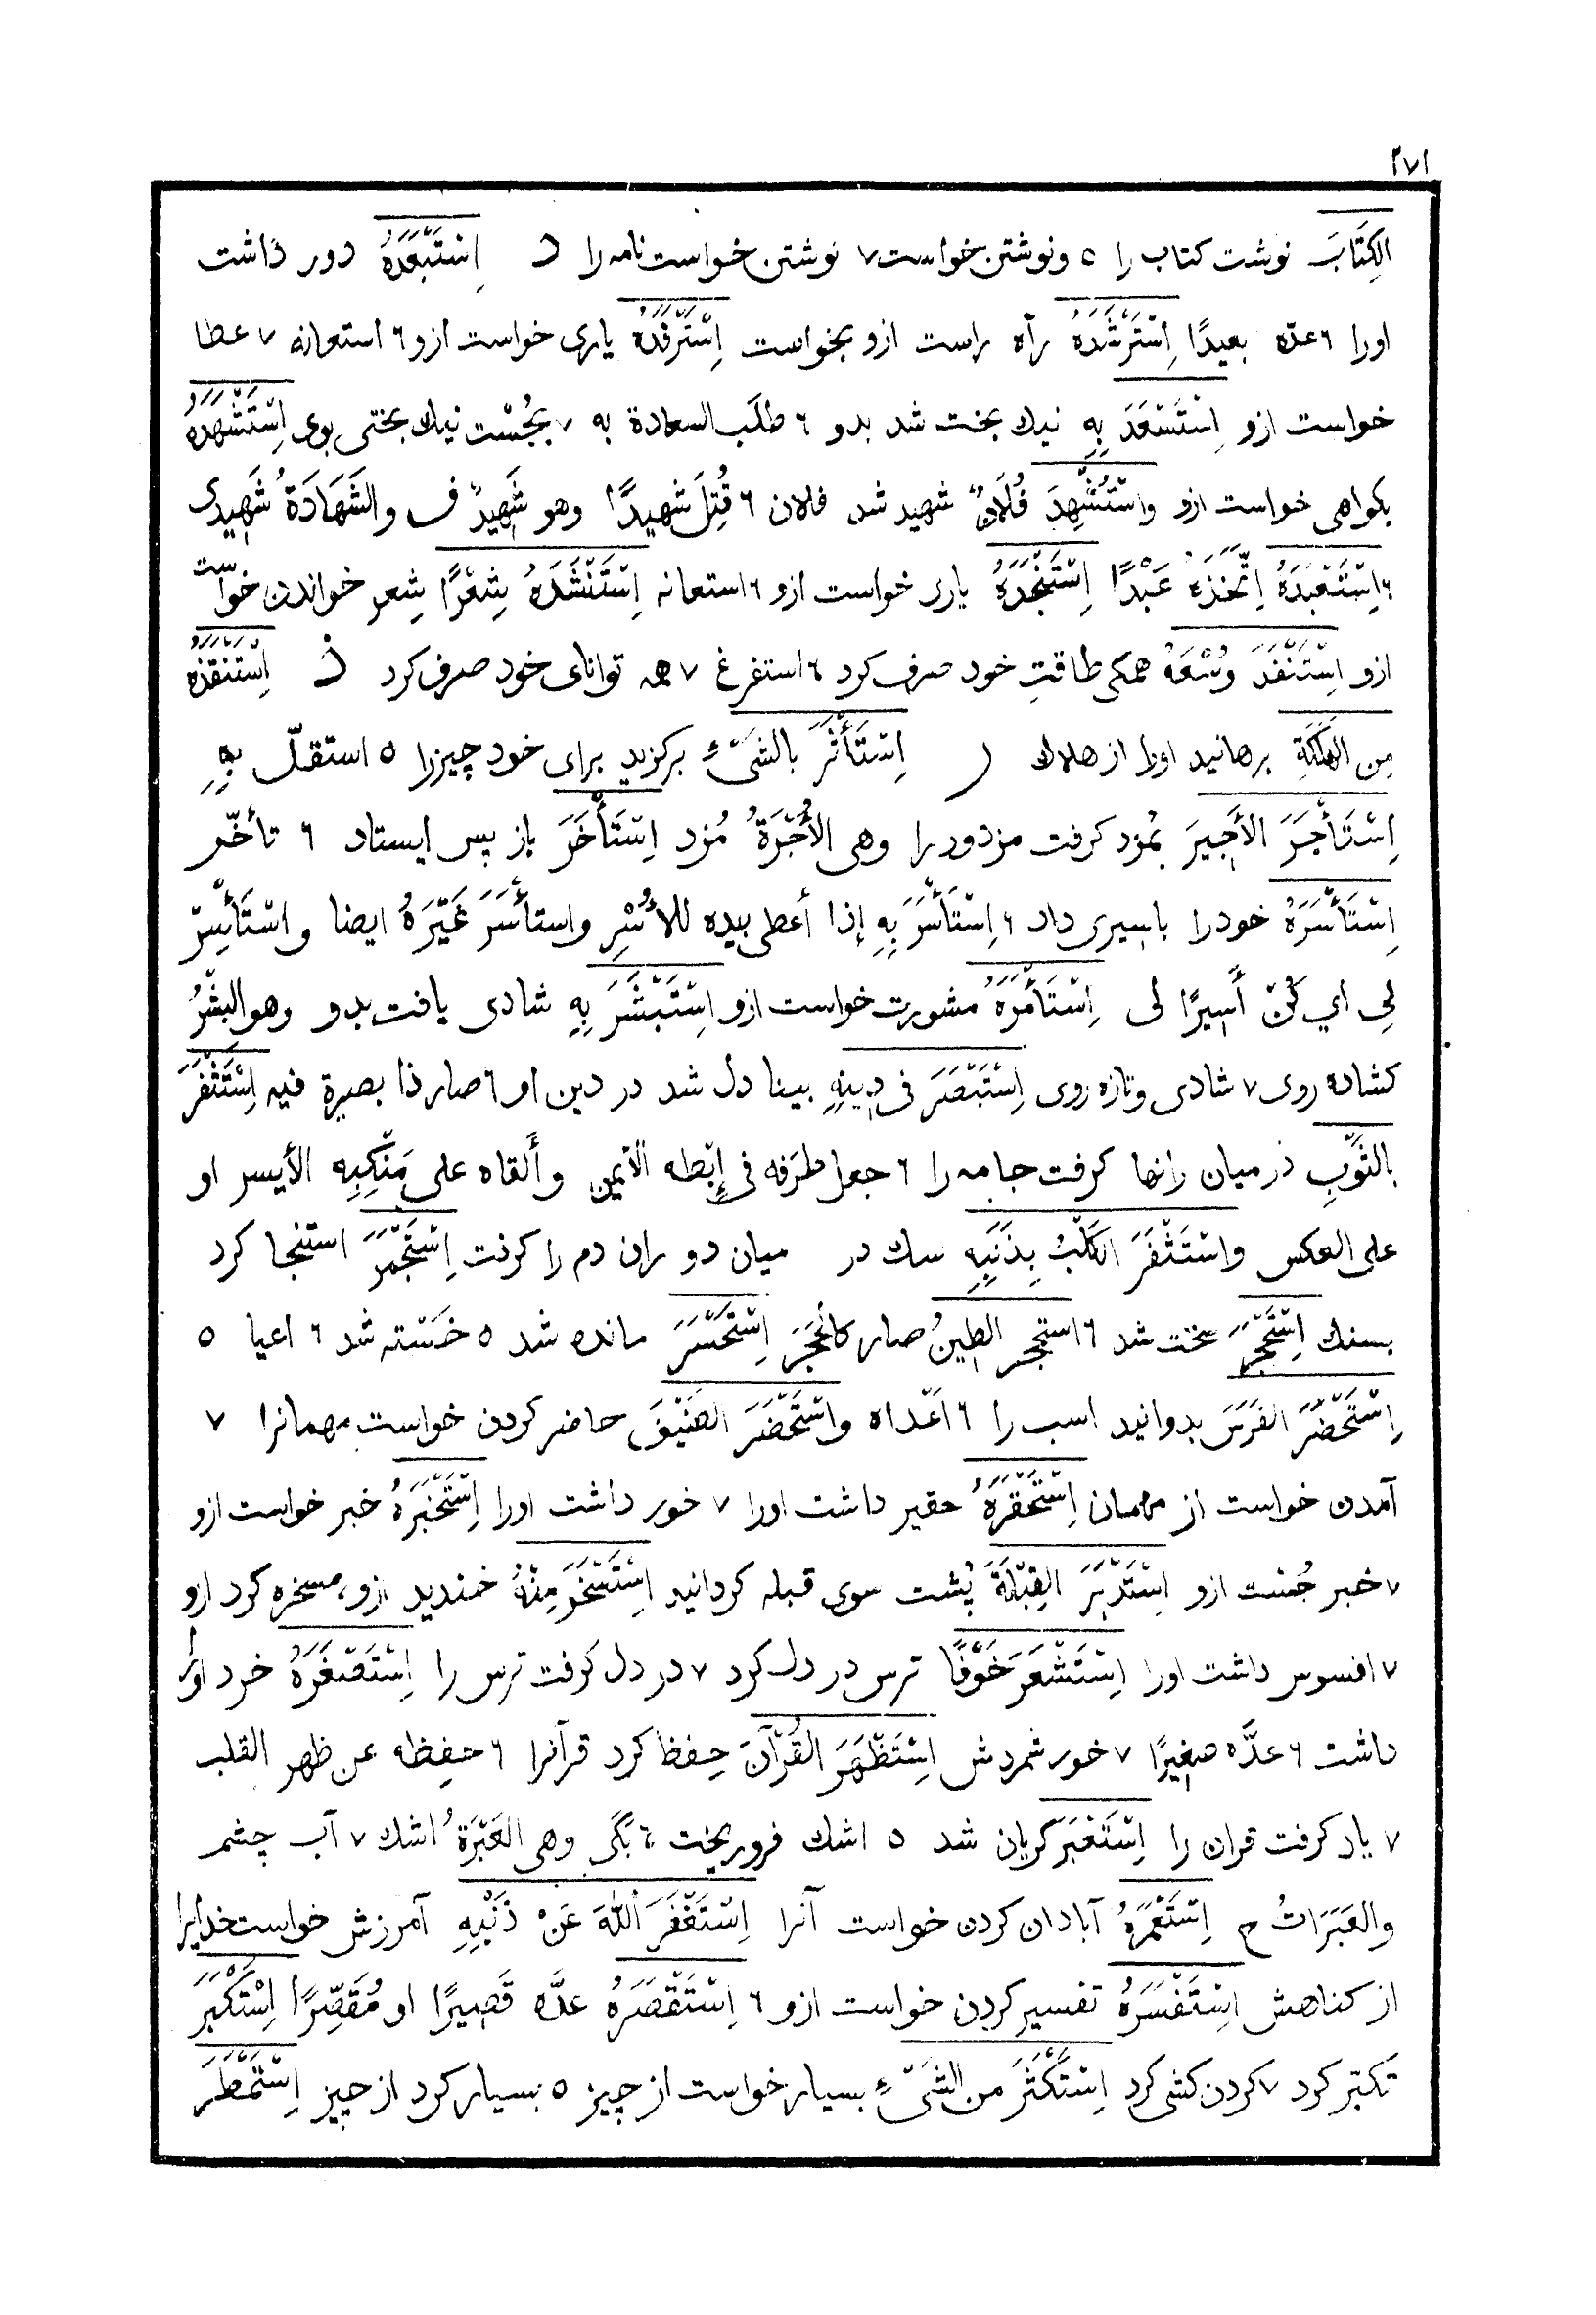 ٢٧١
الكِتَابَ نوشت كتاب را ٥ ونوشتن خواست ٧ نوشتن خواست نامه را د اِسْتَبْعَدَهُ دور داشت
اورا ٦ عدّه بعيدًا اِسْتَرْشَدَهُ راه راست ازو بخواست اِسْتَرْفَدَهُ يارى خواست ازو ٦ استعانه ٧ عطا
خواست ازو اِسْتَسْعَدَ بِهِ نيك بخت شد بدو ٦ طلَب السعادة به ٧ بجُسْت نيك بختى بوى اِسْتَشْهَدَهُ
بكواهى خواست ازو واسْتُشْهِدَ فُلَانٌ شهيد شد فلان ٦ قُتِلَ شهيدًا وهو شَهِيدٌ ف والشَهَادَةُ شَهِيدى
٦ اِسْتَعْبَدَهُ اِتَّخَذَهُ عَبْدًا اِسْتَنْجَدَهُ يارى خواست ازو ٦ استعانه اِسْتَنْشَدَهُ شِعْرًا شِعر خواندن خواست
ازو اِسْتَنْفَدَ وُسْعَهُ همكى طاقتِ خود صرف كرد ٦ استفرغ ٧ همه تواناى خود صرف كرد ذ اِسْتَنْقَذَهُ
مِن الهَلَكَةِ برهانيد اورا از هلاك ر اِسْتَأْثَرَ بالشَىْءِ بركزيد براى خود چيزرا ٥ استقلّ بِهِ
اِسْتَأْجَرَ الأَجِيرَ بمُزد كرفت مزدور را وهى الأُجْرَةُ مُزد اِسْتَأْخَرَ باز پس ايستاد ٦ تأخّر
اِسْتَأْسَرَهُ خودرا باسيرى داد ٦ اِسْتَأْسَرَ بِهِ إذا أعطى بيده للأَسْرِ واستأْسَرَ غَيْرَهُ ايضا واسْتَأْسِرْ
لِى اي كُنْ أَسِيرًا لى اِسْتَأْمَرَهُ مشورت خواست ازو اِسْتَبْشَرَ بِهِ شادى يافت بدو وهو البِشْرُ
كشاده روى ٧ شادى وتازه روى اِسْتَبْصَرَ فى دِينِهِ بينا دل شد در دين او ٦ صار ذا بصيرة فيه اِسْتَثْفَرَ
بالثَوْبِ در ميان رانها كرفت جامه را ٦ جعل طَرَفه فى إِبْطه الأيمن وأَلقاه على مَنْكِبِه الأيسر او
على العكس واسْتَثْفَرَ الكَلْبُ بِذَنَبِهِ سك در ميان دو ران دم را كرفت اِسْتَجْمَرَ استنجا كرد
بسنك اِسْتَحْجَرَ سخت شد ٦ استحجر الطِينُ صار كالحَجَرِ اِسْتَحْسَرَ مانده شد ٥ خَسْته شد ٦ اعيا ٥
اِسْتَحْضَرَ الفَرَسَ بدوانيد اسب را ٦ اَعْداه واسْتَحْضَرَ الضَيْفَ حاضر كردن خواست مهمانرا ٧
آمدن خواست از مهمان اِسْتَحْقَرَهُ حقير داشت اورا ٧ خور داشت اورا اِسْتَخْبَرَهُ خبر خواست ازو
٧ خبر جُست ازو اِسْتَدْبَرَ القِبْلَةَ پُشت سوى قبله كردانيد اِسْتَسْخَرَ مِنْهُ خنديد ازو، مسخره كرد ازو
٧ افسوس داشت اورا اِسْتَشْعَرَ خَوْفًا ترس در دل كرد ٧ در دل كرفت ترس را اِسْتَصْغَرَهُ خرد اورا
داشت ٦ عدَّه صغِيرًا ٧ خور شمردش اِسْتَظْهَرَ القُرْآنَ حِفظ كرد قرآنرا ٦ حفِظه عن ظهر القلب
٧ ياد كرفت قران را اِسْتَعْبَرَ كريان شد ٥ اشك فرو ريخت ٦ بَكَى وهى العَبْرَةُ اشك ٧ آب چشم
والعَبَرَاتُ ج اِسْتَعْمَرَهُ آبادان كردن خواست آنرا اِسْتَغْفَرَ اللهَ عَنْ ذَنْبِهِ آمرزش خواست خدايرا
از كناهش اِسْتَفْسَرَهُ تفسير كردن خواست ازو ٦ اِسْتَقْصَرَهُ عدَّه قَصِيرًا او مُقَصِّرًا اِسْتَكْبَرَ
تكبّر كرد ٧ كردن كشى كرد اِسْتَكْثَرَ من الشَىْءِ بسيار خواست از چيز ٥ بسيار كرد از چيز اِسْتَمْطَرَ